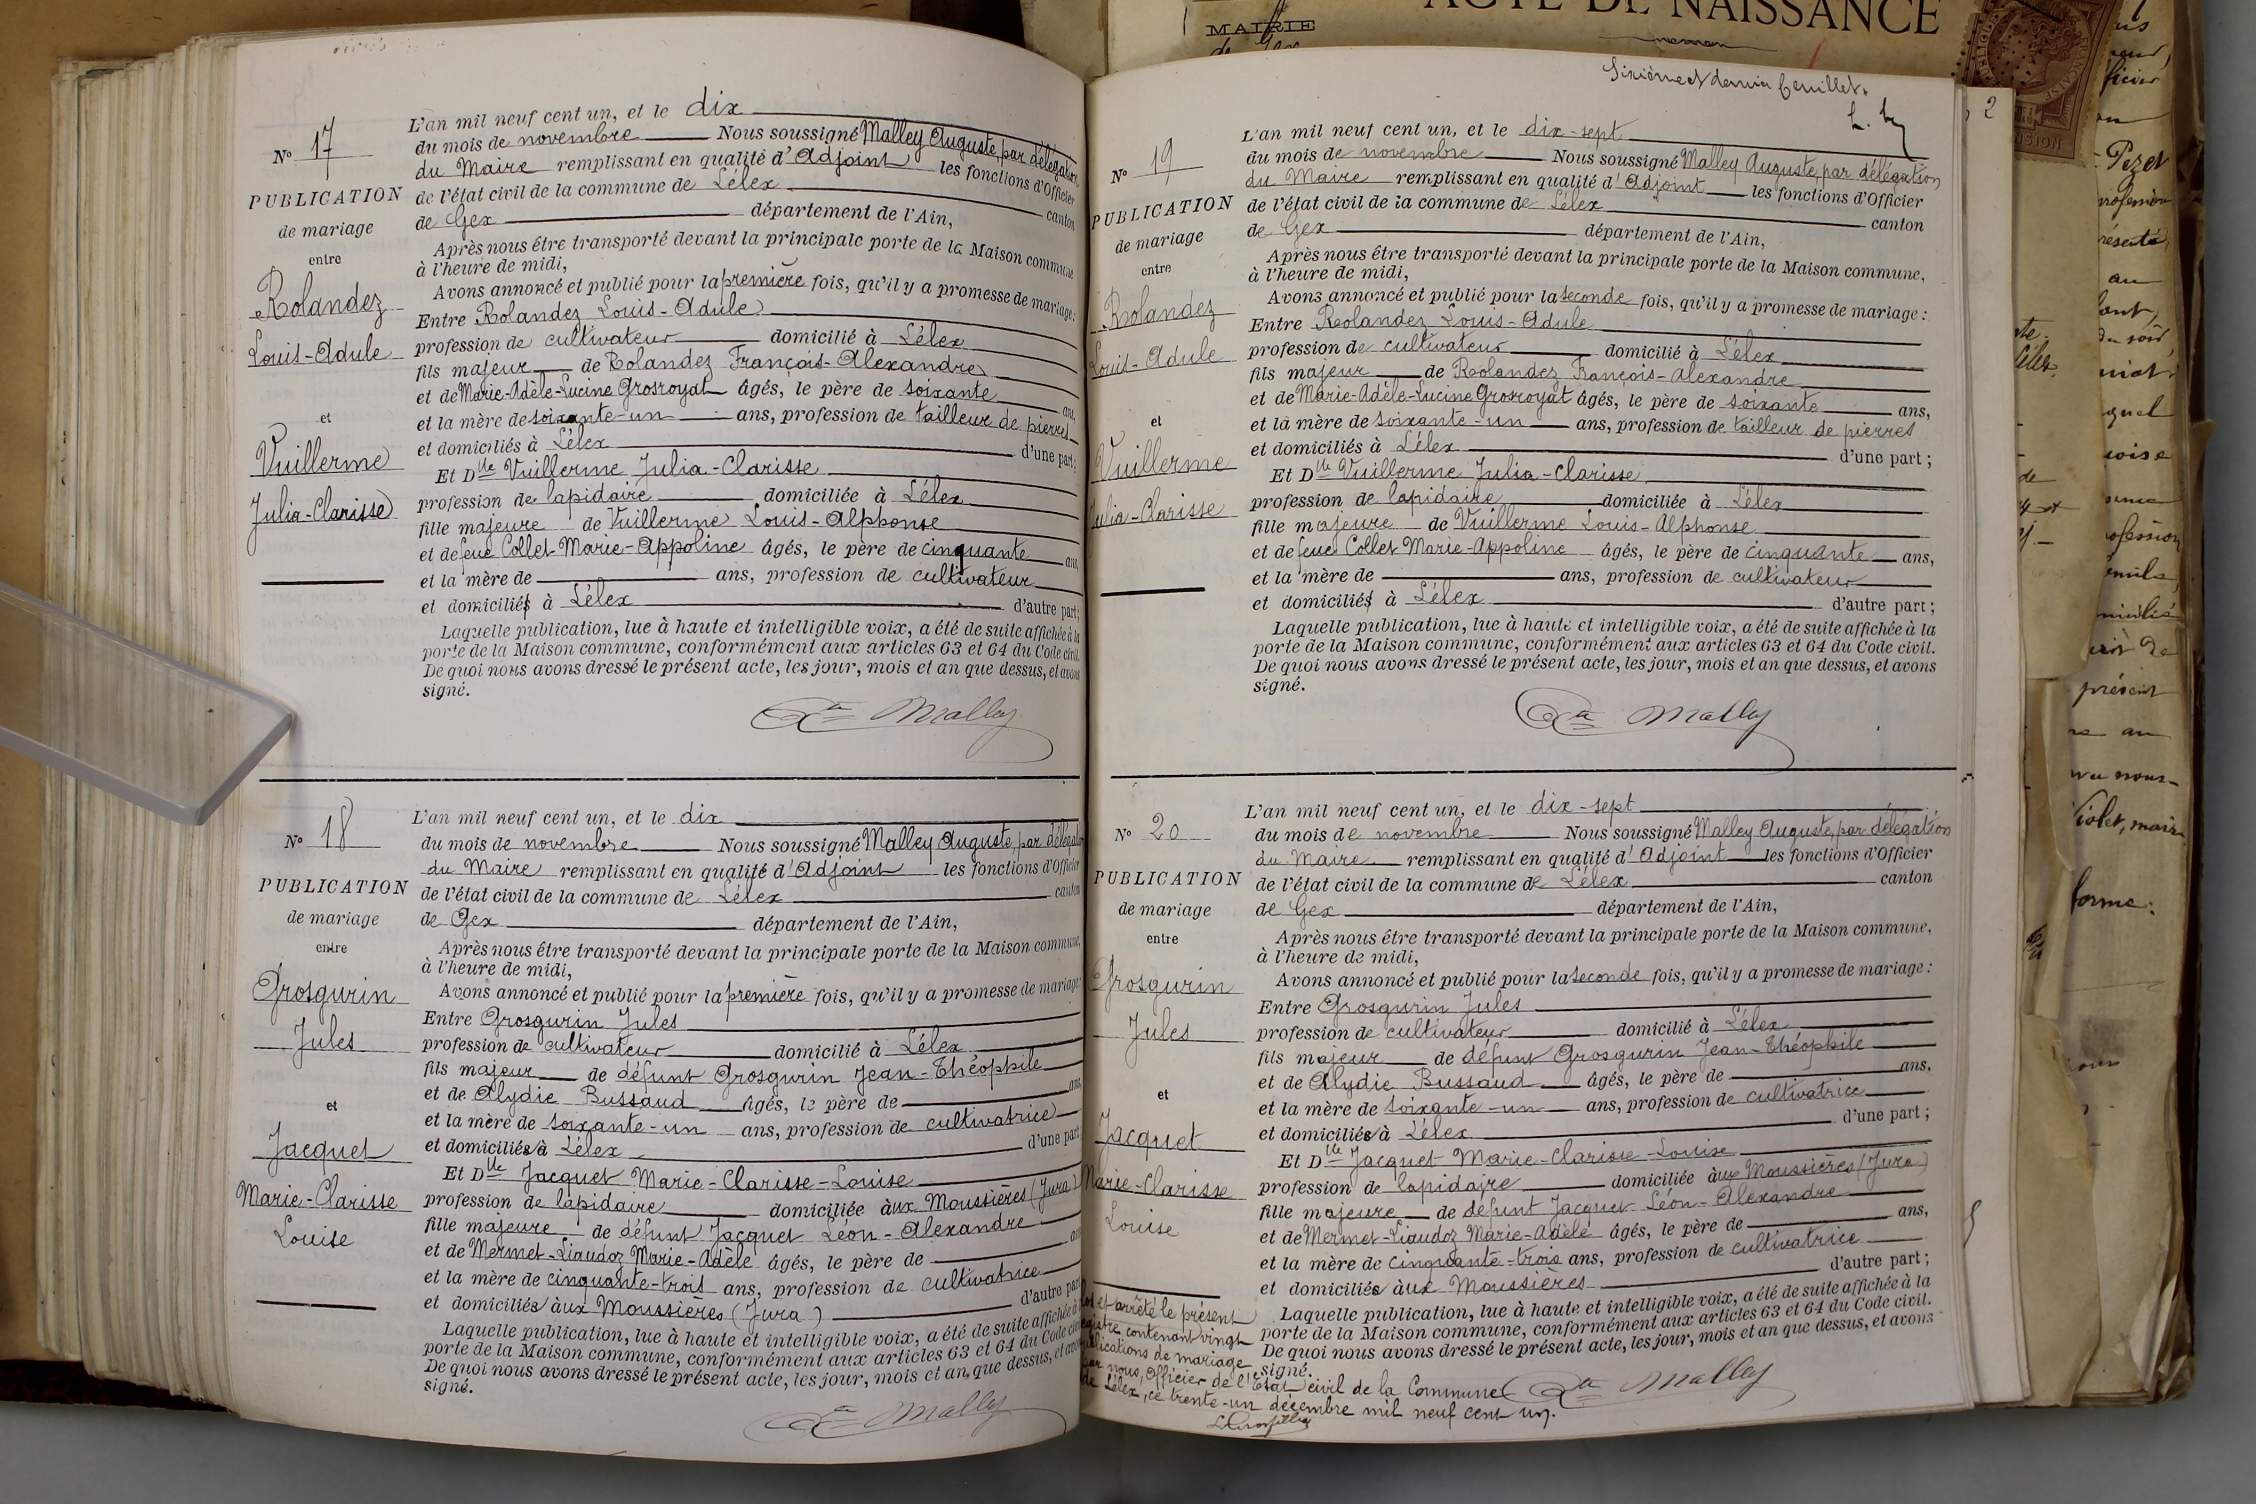 N° 17
PUBLICATION
de mariage
entre
Rolandez
Louis-Adule
et
Vuillerme
Julia-Clarisse
L'an mil neuf cent un, et le dix
du mois de novembre Nous soussigné Malley Auguste, par délégation
du Maire remplissant en qualité d'Adjoint les fonctions d'Officier
de l'état civil de la commune de Lélex canton
de Gex département de l'Ain,
Après nous être transporté devant la principale porte de la Maison commune
à l'heure de midi,
Avons annoncé et publié pour la première fois, qu'il y a promesse de mariage :
Entre Rolandez Louis-Adule
profession de cultivateur domicilié à Lélex
fils majeur de Rolandez François-Alexandre
et de Marie-Adèle-Lucine Grosroyat âgés, le père de soixante ans,
et la mère de soixante-un ans, profession de tailleur de pierres
et domiciliés à Lélex d'une part ;
Et Dlle Vuillerme Julia-Clarisse
profession de lapidaire domiciliée à Lélex
fille majeure de Vuillerme Louis-Alphonse
et de feue Collet Marie-Appoline âgés, le père de cinquante ans,
et la mère de ans, profession de cultivateur
et domiciliés à Lélex d'autre part ;
Laquelle publication, lue à haute et intelligible voix, a été de suite affichée à la
porte de la Maison commune, conformément aux articles 63 et 64 du Code civil.
De quoi nous avons dressé le présent acte, les jour, mois et an que dessus, et avons
signé.
Malley
N° 18
PUBLICATION
de mariage
entre
Grosgurin
Jules
et
Jacquet
Marie-Clarisse
Louise
L'an mil neuf cent un, et le dix
du mois de novembre Nous soussigné Malley Auguste, par délégation
du Maire remplissant en qualité d'Adjoint les fonctions d'Officier
de l'état civil de la commune de Lélex canton
de Gex département de l'Ain,
Après nous être transporté devant la principale porte de la Maison commune,
à l'heure de midi,
Avons annoncé et publié pour la première fois, qu'il y a promesse de mariage :
Entre Grosgurin Jules
profession de cultivateur domicilié à Lélex
fils majeur de défunt Grosgurin Jean-Théophile
et de Alydie Bussaud âgés, le père de ans,
et la mère de soixante-un ans, profession de cultivatrice
et domiciliés à Lélex d'une part
Et Dlle Jacquet Marie-Clarisse-Louise
profession de lapidaire domiciliée àux Moussières (Jura)
fille majeure de défunt Jacquet Léon-Alexandre
et de Mermet-Liaudoz Marie-Adèle âgés, le père de ans
et la mère de cinquante-trois ans, profession de cultivatrice
et domiciliés àux Moussières (Jura) d'autre part
Laquelle publication, lue à haute et intelligible voix, a été de suite affichée à
porte de la Maison commune, conformément aux articles 63 et 64 du Code civil
De quoi nous avons dressé le présent acte, les jour, mois et an que dessus, et avons
signé.
Malley
MAIRIE
ACTE DE NAISSANCE
Sixième et dernier feuillet.
N° 19
PUBLICATION
de mariage
entre
Rolandez
Louis-Adule
et
Vuillerme
Julia-Clarisse
L'an mil neuf cent un, et le dix-sept
du mois de novembre Nous soussigné Malley Auguste, par délégation
du Maire remplissant en qualité d'Adjoint les fonctions d'Officier
de l'état civil de la commune de Lélex canton
de Gex département de l'Ain,
Après nous être transporté devant la principale porte de la Maison commune,
à l'heure de midi,
Avons annoncé et publié pour la seconde fois, qu'il y a promesse de mariage :
Entre Rolandez Louis-Adule
profession de cultivateur domicilié à Lélex
fils majeur de Rolandez François-Alexandre
et de Marie-Adèle-Lucine Grosroyat âgés, le père de soixante ans,
et la mère de soixante-un ans, profession de tailleur de pierres
et domiciliés à Lélex d'une part ;
Et Dlle Vuillerme Julia-Clarisse
profession de lapidaire domiciliée à Lélex
fille majeure de Vuillerme Louis-Alphonse
et de feue Collet Marie-Appoline âgés, le père de cinquante ans,
et la mère de ans, profession de cultivateur
et domiciliés à Lélex d'autre part ;
Laquelle publication, lue à haute et intelligible voix, a été de suite affichée à la
porte de la Maison commune, conformément aux articles 63 et 64 du Code civil.
De quoi nous avons dressé le présent acte, les jour, mois et an que dessus, et avons
signé.
Malley
N° 20
PUBLICATION
de mariage
entre
Grosgurin
Jules
et
Jacquet
Marie-Clarisse
Louise
L'an mil neuf cent un, et le dix-sept
du mois de novembre Nous soussigné Malley Auguste, par délégation
du Maire remplissant en qualité d'Adjoint les fonctions d'Officier
de l'état civil de la commune de Lélex canton
de Gex département de l'Ain,
Après nous être transporté devant la principale porte de la Maison commune,
à l'heure de midi,
Avons annoncé et publié pour la seconde fois, qu'il y a promesse de mariage :
Entre Grosgurin Jules
profession de cultivateur domicilié à Lélex
fils majeur de défunt Grosgurin Jean-Théophile
et de Alydie Bussaud âgés, le père de ans,
et la mère de soixante-un ans, profession de cultivatrice
et domiciliés à Lélex d'une part ;
Et Dlle Jacquet Marie-Clarisse-Louise
profession de lapidaire domiciliée àux Moussières (Jura)
fille majeure de défunt Jacquet Léon-Alexandre
et de Mermet-Liaudoz Marie-Adèle âgés, le père de ans,
et la mère de cinquante-trois ans, profession de cultivatrice
et domiciliés àux Moussières d'autre part ;
Laquelle publication, lue à haute et intelligible voix, a été de suite affichée à la
porte de la Maison commune, conformément aux articles 63 et 64 du Code civil.
De quoi nous avons dressé le présent acte, les jour, mois et an que dessus, et avons
signé.
Malley
et arrêté le présent
contenant vingt
publications de mariage
par nous, Officier de l'Etat civil de la Commune
de Lélex, ce trente-un décembre mil neuf cent un.